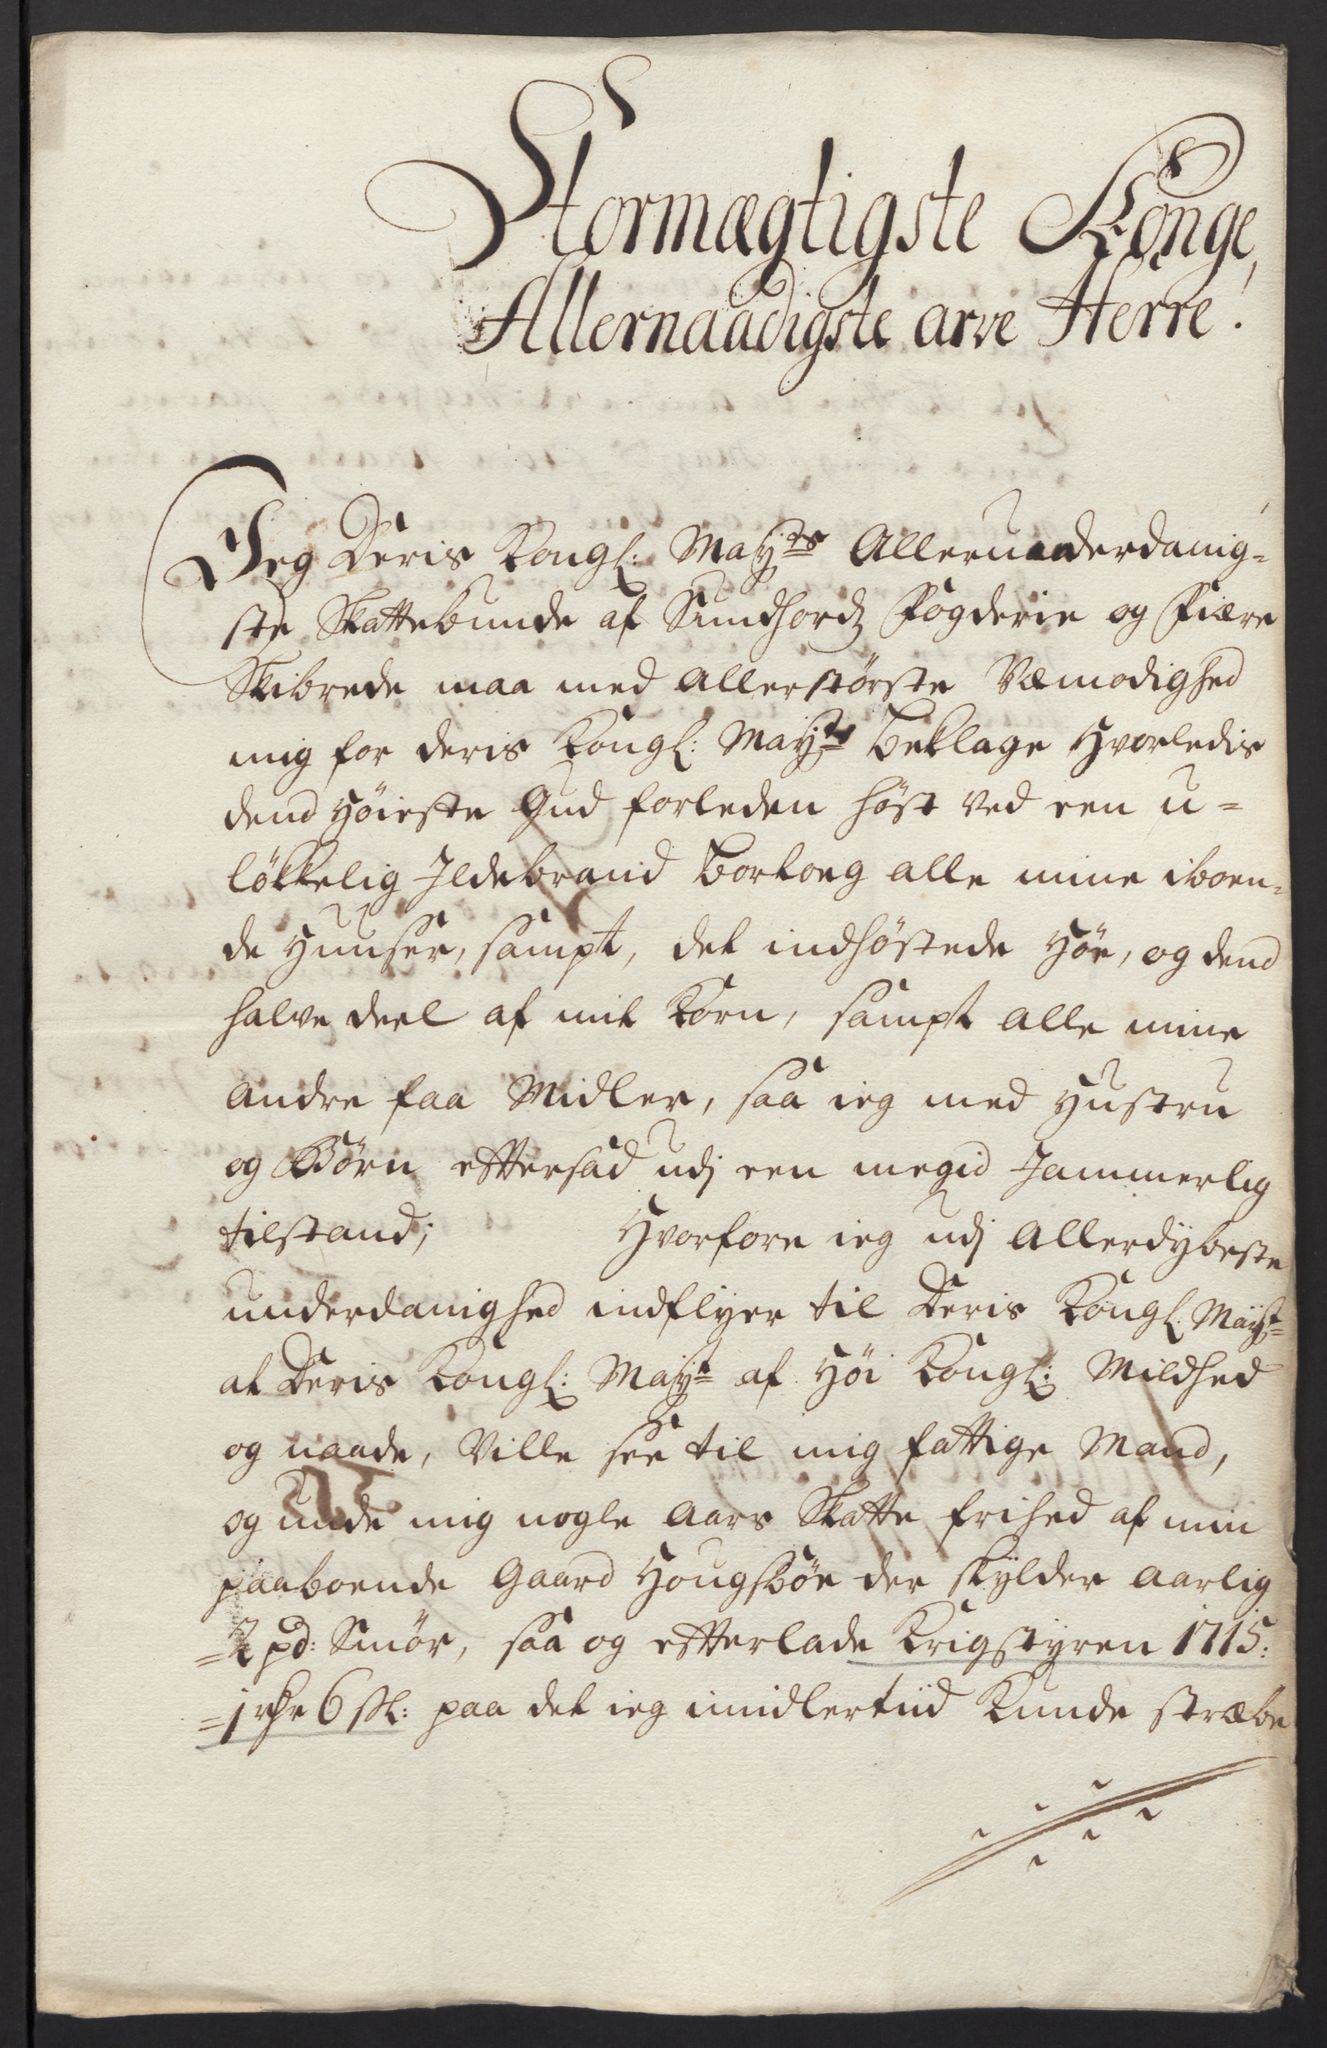 Stormægtigste Konge,
Allernaadigste arve Herre!
Jeg Deris Kongl: Mayts Allerunderdanig-
ste Skattebunde af Sundhordz Fogderie og Fiære
Skibrede maa med allerstörste Væmodighed
mig for deris Kongl: Mayts beklage hvorledis
dend høieste Gud forleden høst ved een u-
løkkelig Jldebrand bortog alle mine iboen-
de huuser, sampt, det indhøstede høe, og dend
halve deel af mit Korn, sampt alle mine
andre faa Midler, saa ieg med hustru
og Børn eftersad udj een megid Jammerlig
tilstand; Hvorfore ieg udj allerdybeste
underdanighed indflyer til Deris Kongl: Mayt
at Deris Kongl: Mayt af høi Kongl: Mildhed
og naade, Ville see til mig fattige Mand,
og unde mig nogle aars Skatte frihed af min
paaboende Gaard Hougsböe der skylder aarlig
2 pd: Smör, saa og efterlade Krigstyren 1715:
1 rdr 6 sk: paa det ieg imidlertiid Kunde stræbe